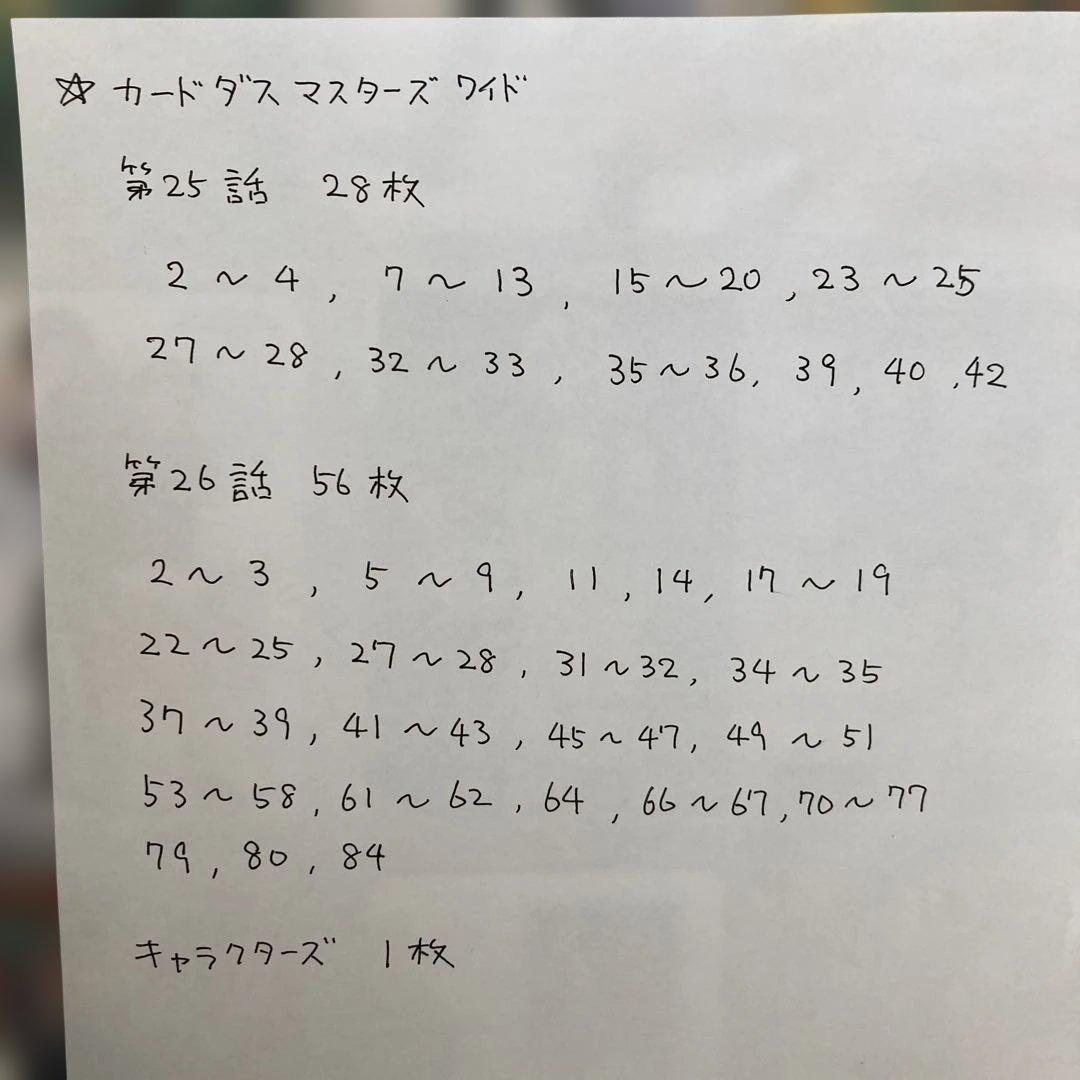 ☆ カードダス マスターズ ワイド
第25話 28枚
2〜4, 7〜13, 15〜20, 23〜25
27〜28, 32〜33, 35〜36, 39, 40, 42
第26話 56枚
2〜3, 5〜9, 11, 14, 17〜19
22〜25, 27〜28, 31〜32, 34〜35
37〜39, 41〜43, 45〜47, 49〜51
53〜58, 61〜62, 64, 66〜67, 70〜77
79, 80, 84
キャラクターズ 1枚